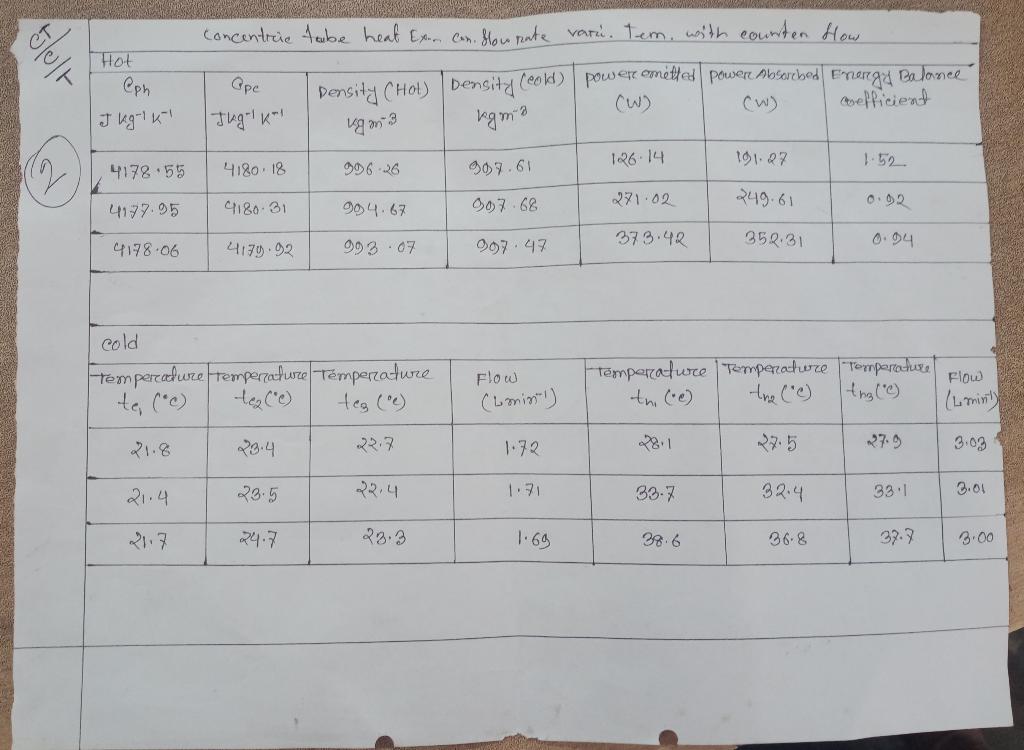 CT/C/T
concentric tube heat Exn. con. flow rate vari. Tem. with counter flow
Hot
Cph J kg-1 K-1 Cpc J kg-1 K-1 Density (Hot) kg m-3 Density (cold) kg m-3 power emitted (W) power Absorbed (W) Energy Balance coefficient
2
4178.55 4180.18 996.26 997.61 126.14 191.27 1.52
4177.95 4180.31 994.67 997.68 271.02 249.61 0.92
4178.06 4179.92 993.07 997.47 373.42 352.31 0.94
cold
Temperature tc1 (°c) Temperature tc2 (°c) Temperature tc3 (°c) Flow (L min-1) Temperature tn1 (°c) Temperature tn2 (°c) Temperature tn3 (°c) Flow (L min-1)
21.8 23.4 22.7 1.72 28.1 27.5 27.9 3.03
21.4 23.5 22.4 1.71 33.7 32.4 33.1 3.01
21.7 24.7 23.3 1.69 38.6 36.8 37.7 3.00